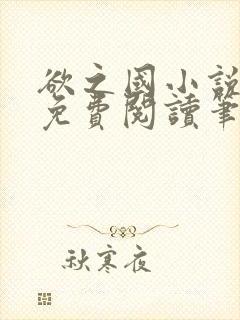 欲之國小說
免費閱讀筆
秋寒夜